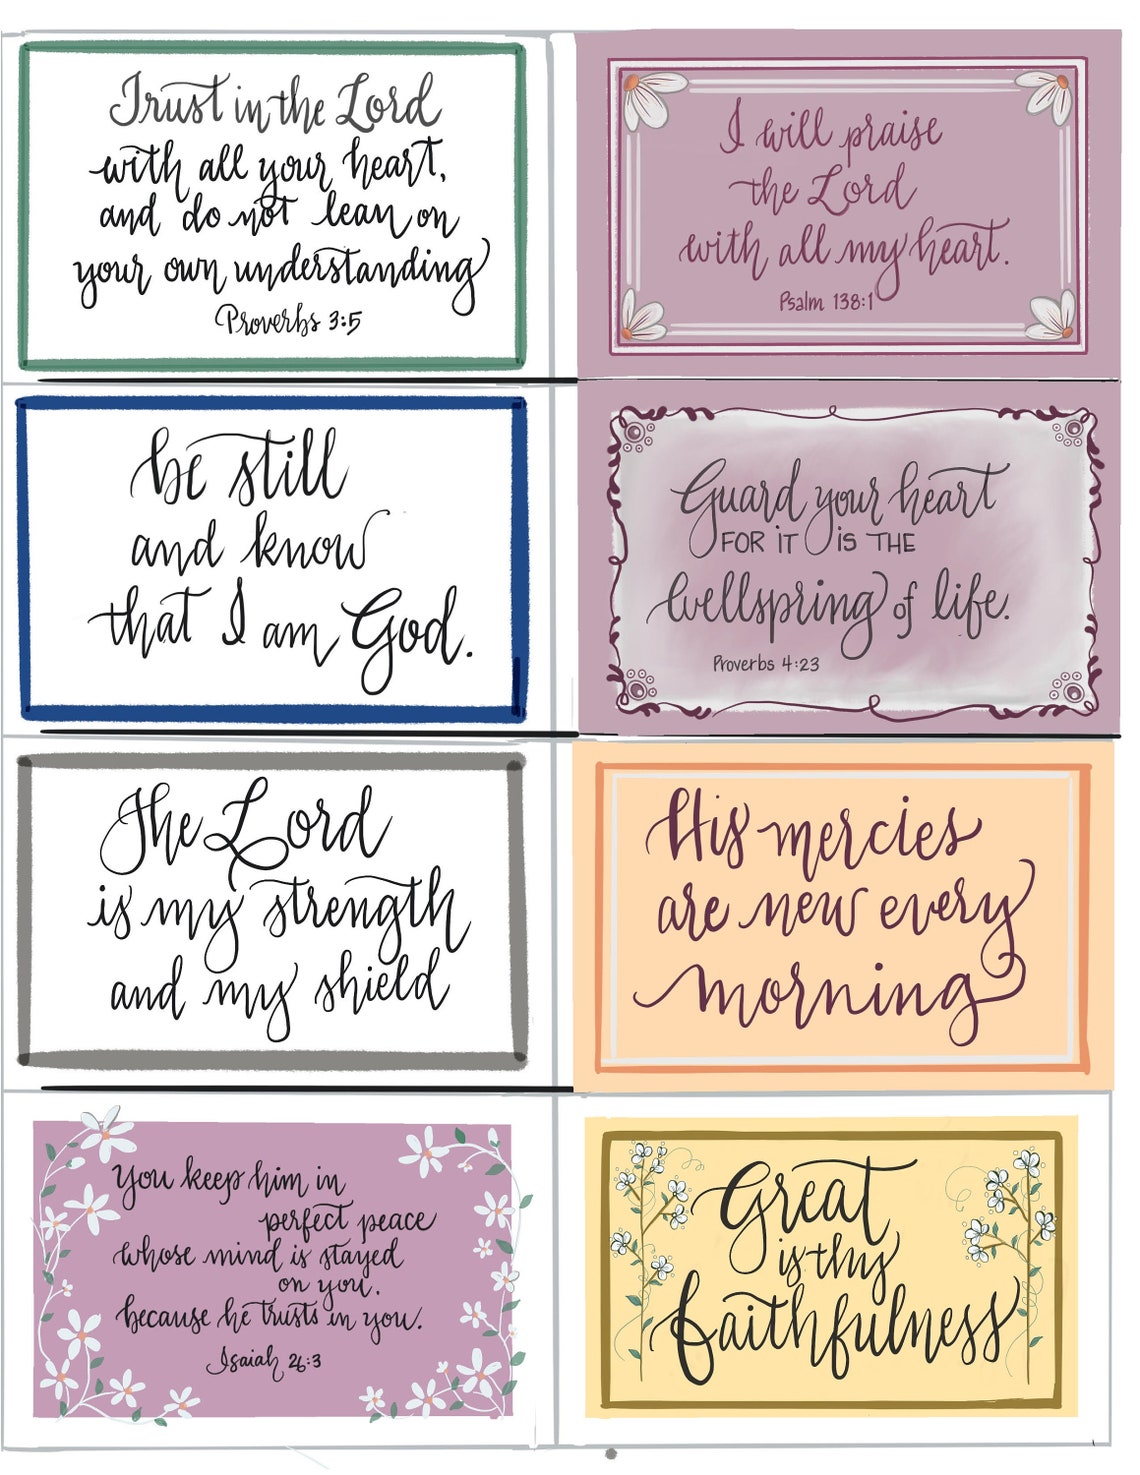 Trust in the Lord
with all your heart,
and do not lean on
your own understanding
Proverbs 3:5
I will praise
the Lord
with all my heart.
Psalm 138:1
be still
and know
that I am God.
Guard your heart
FOR IT IS THE
wellspring of life.
Proverbs 4:23
The Lord
is my strength
and my shield
His mercies
are new every
morning
You keep him in
perfect peace
whose mind is stayed
on you.
because he trusts in you.
Isaiah 26:3
Great
is thy
faithfulness